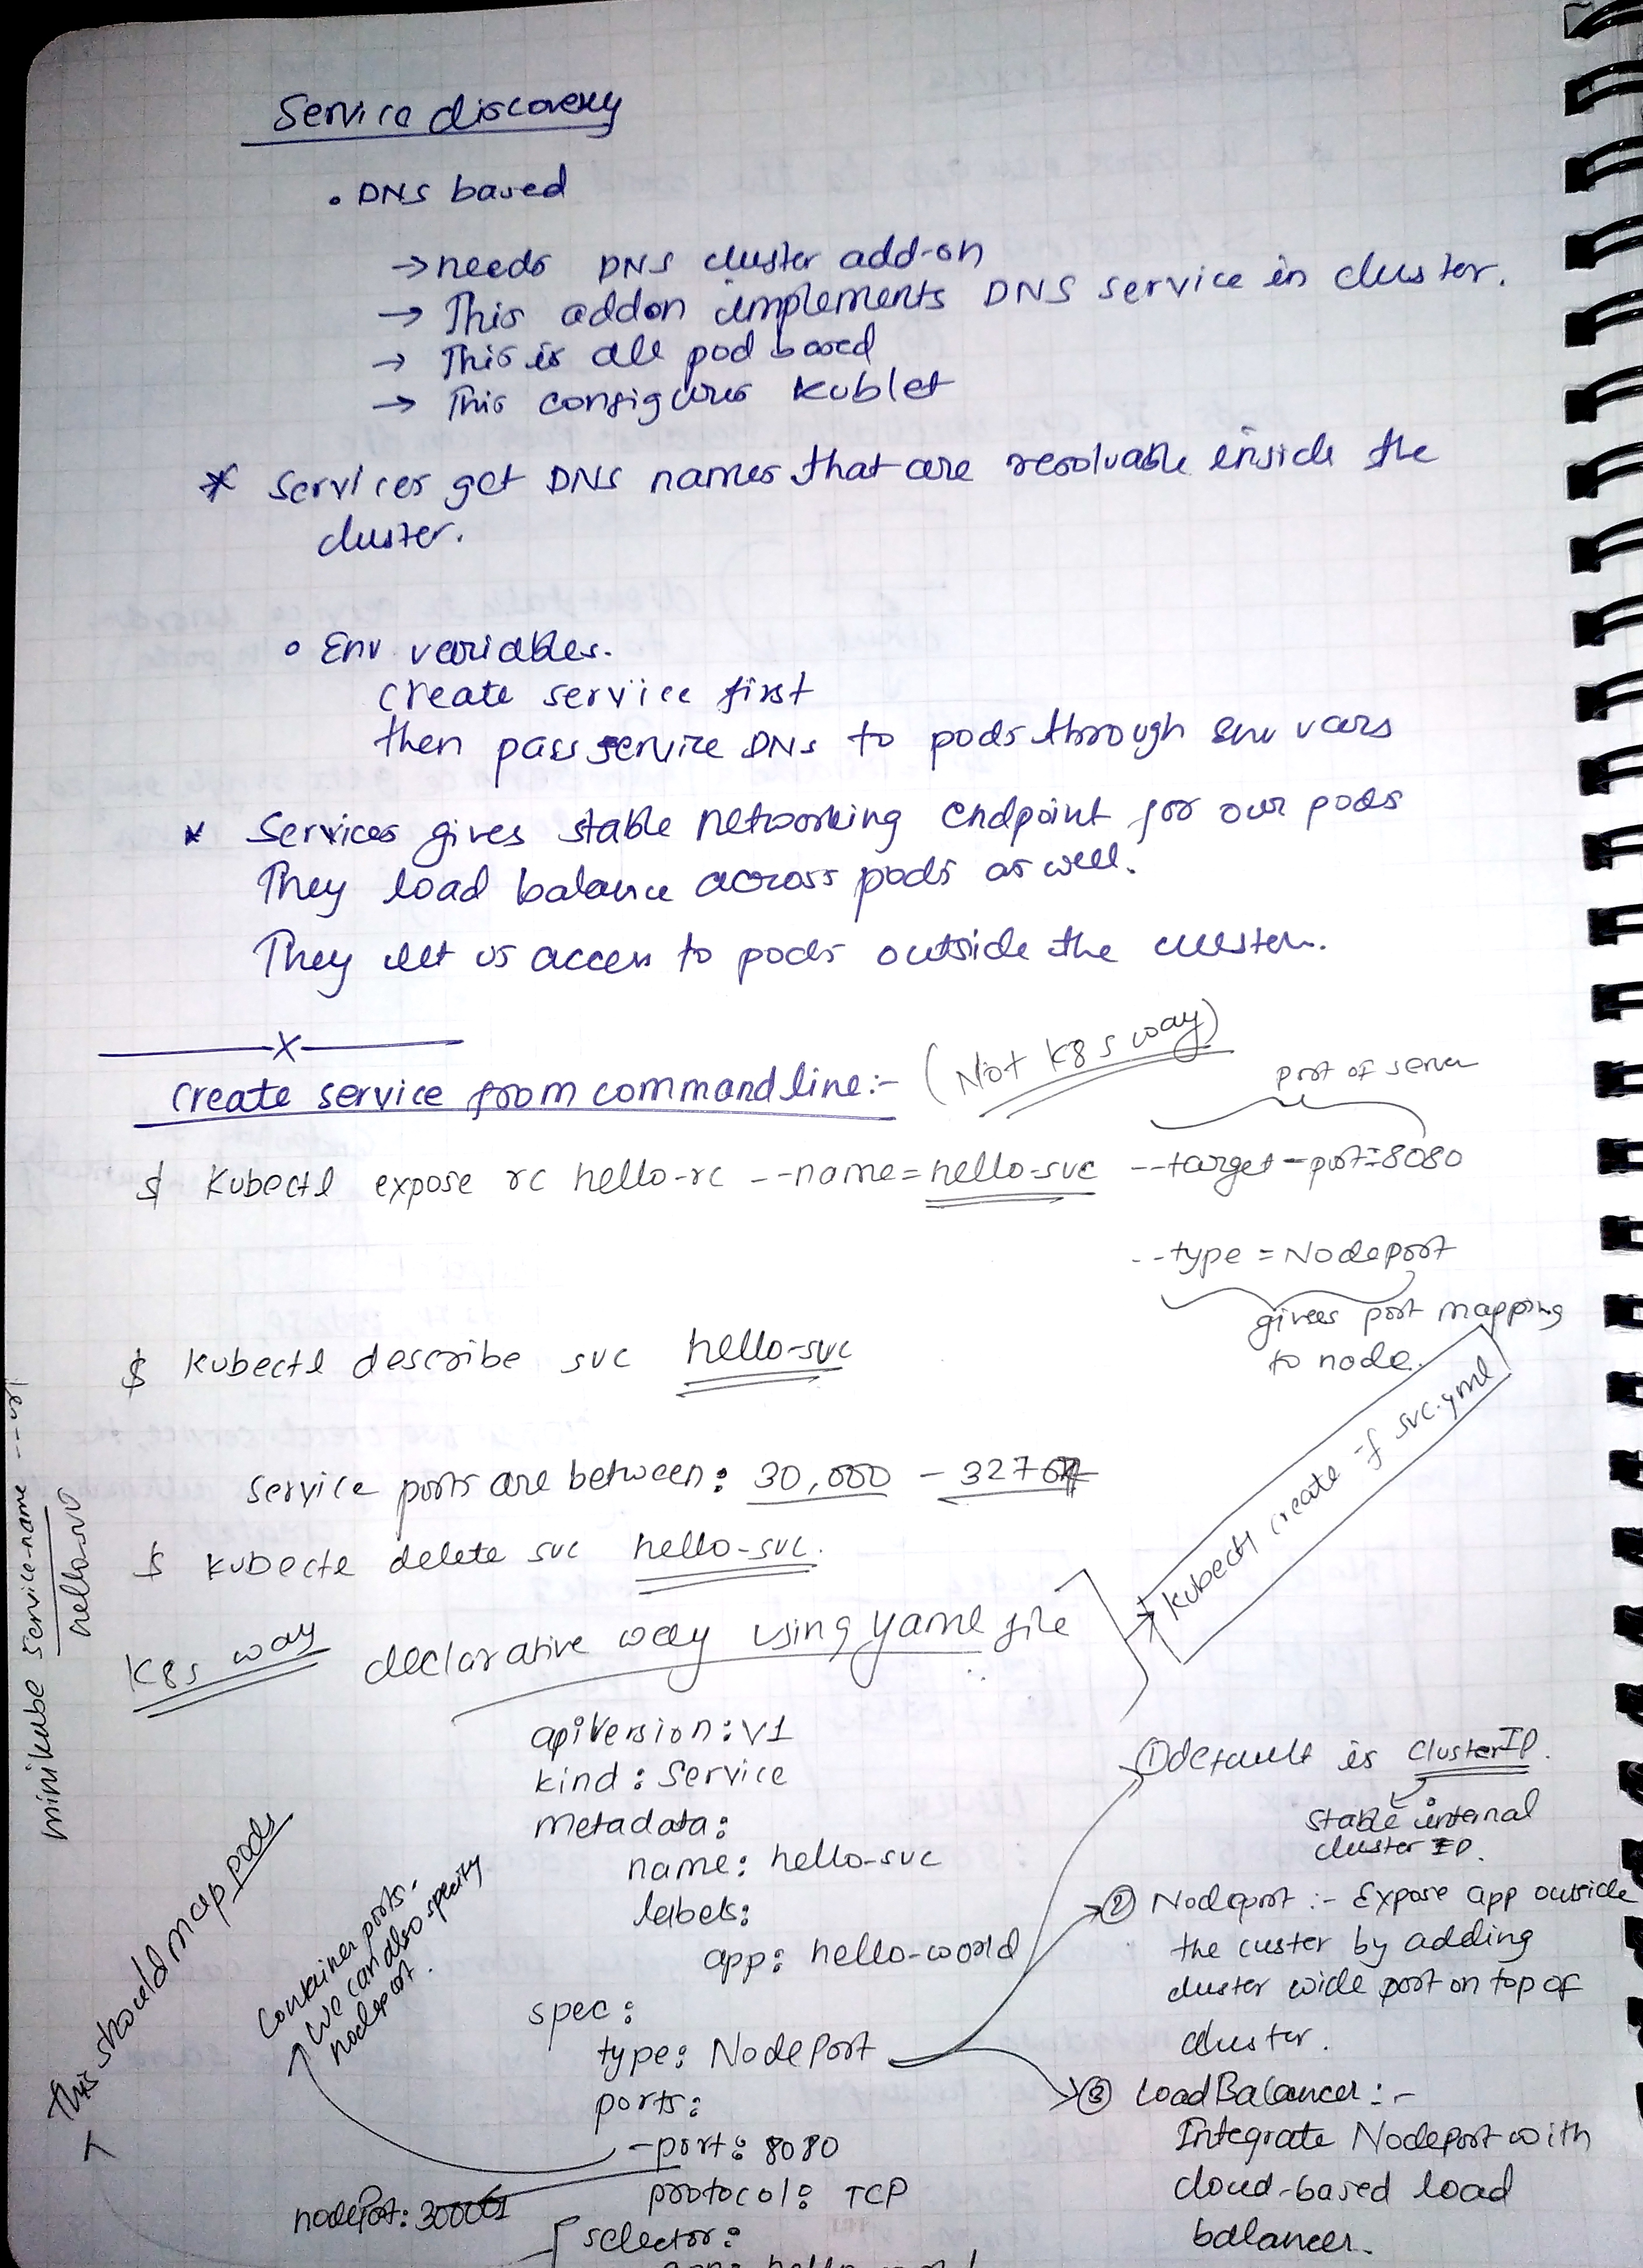 Service discovery
• DNS based
→ needs DNS cluster add-on
→ This addon implements DNS service in cluster.
→ This is all pod based
→ This configures kublet
* Services get DNS names that are resolvable inside the
cluster.
• Env variables.
Create service first
then pass service DNS to pods through env vars
* Services gives stable networking endpoint for our pods
They load balance across pods as well.
They let us access to pods outside the cluster.
X
Create service from command line:- (Not K8s way)
port of server
$ Kubectl expose rc hello-rc --name=hello-svc --target-port=8080
--type = Nodeport
gives port mapping
to node.
$ kubectl describe svc hello-svc
Service ports are between: 30,000 - 32767
$ kubectl delete svc hello-svc.
K8s way declarative way using yaml file
→ kubectl create -f svc.yml
minikube service-name --url
hello-svc
apiVersion: v1
kind: Service
metadata:
name: hello-svc
labels:
app: hello-world
spec:
type: NodePort
ports:
- port: 8080
protocol: TCP
nodePort:
selector:
This should map pods
Container ports.
We can also specify
nodeport.
① default is ClusterIP.
stable internal
cluster IP.
② Nodeport :- Expose app outside
the custer by adding
cluster wide port on top of
cluster.
③ LoadBalancer:-
Integrate Nodeport with
cloud-based load
balancer.